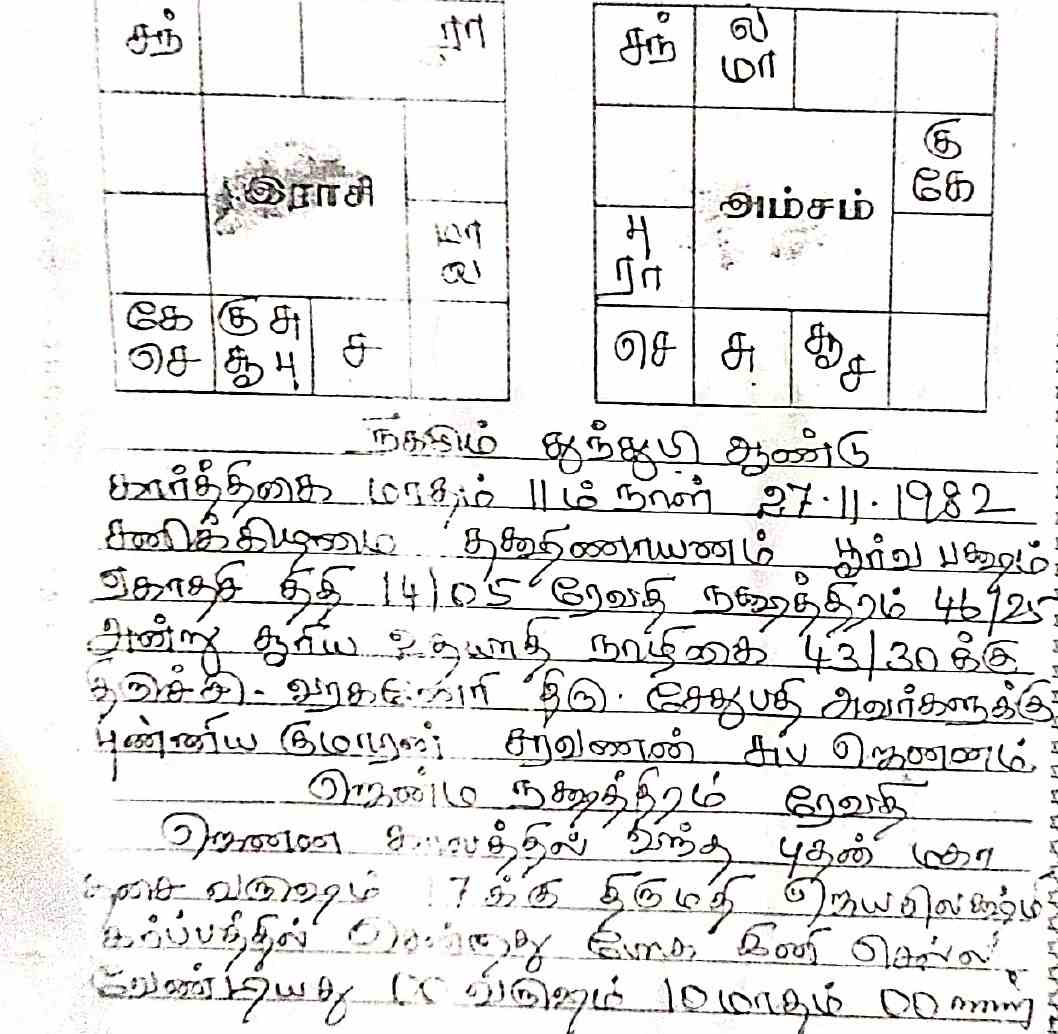 சந் ரா
இராசி
மா
ல
கே கு சு
செ சூ பு ச
சந் ல
மா
கு
கே
அம்சம்
பு
ரா
செ சு சூ ச
நிகழும் துந்துபி ஆண்டு
கார்த்திகை மாதம் 11ம் நாள் 27.11.1982
சனிக்கிழமை தக்ஷிணாயணம் பூர்வ பக்ஷம்
ஏகாதசி திதி 14/05 ரேவதி நக்ஷத்திரம் 46/25
அன்று சூரிய உதயாதி நாழிகை 43/30க்கு
திருச்சி - திரு. சேதுபதி அவர்களுக்கு
புண்ணிய குமாரன் சரவணன் சுப ஜெனனம்
ஜெண்ம நக்ஷத்திரம் ரேவதி
ஜெனன காலத்தில் வந்த புதன் மகா
வருஷம் 17க்கு திருமதி ஜெயலெக்ஷ்மி
கர்ப்பத்தில் சென்றது போக இனி செல்ல
வேண்டியது வருஷம் 10 மாதம் 00 நாள்